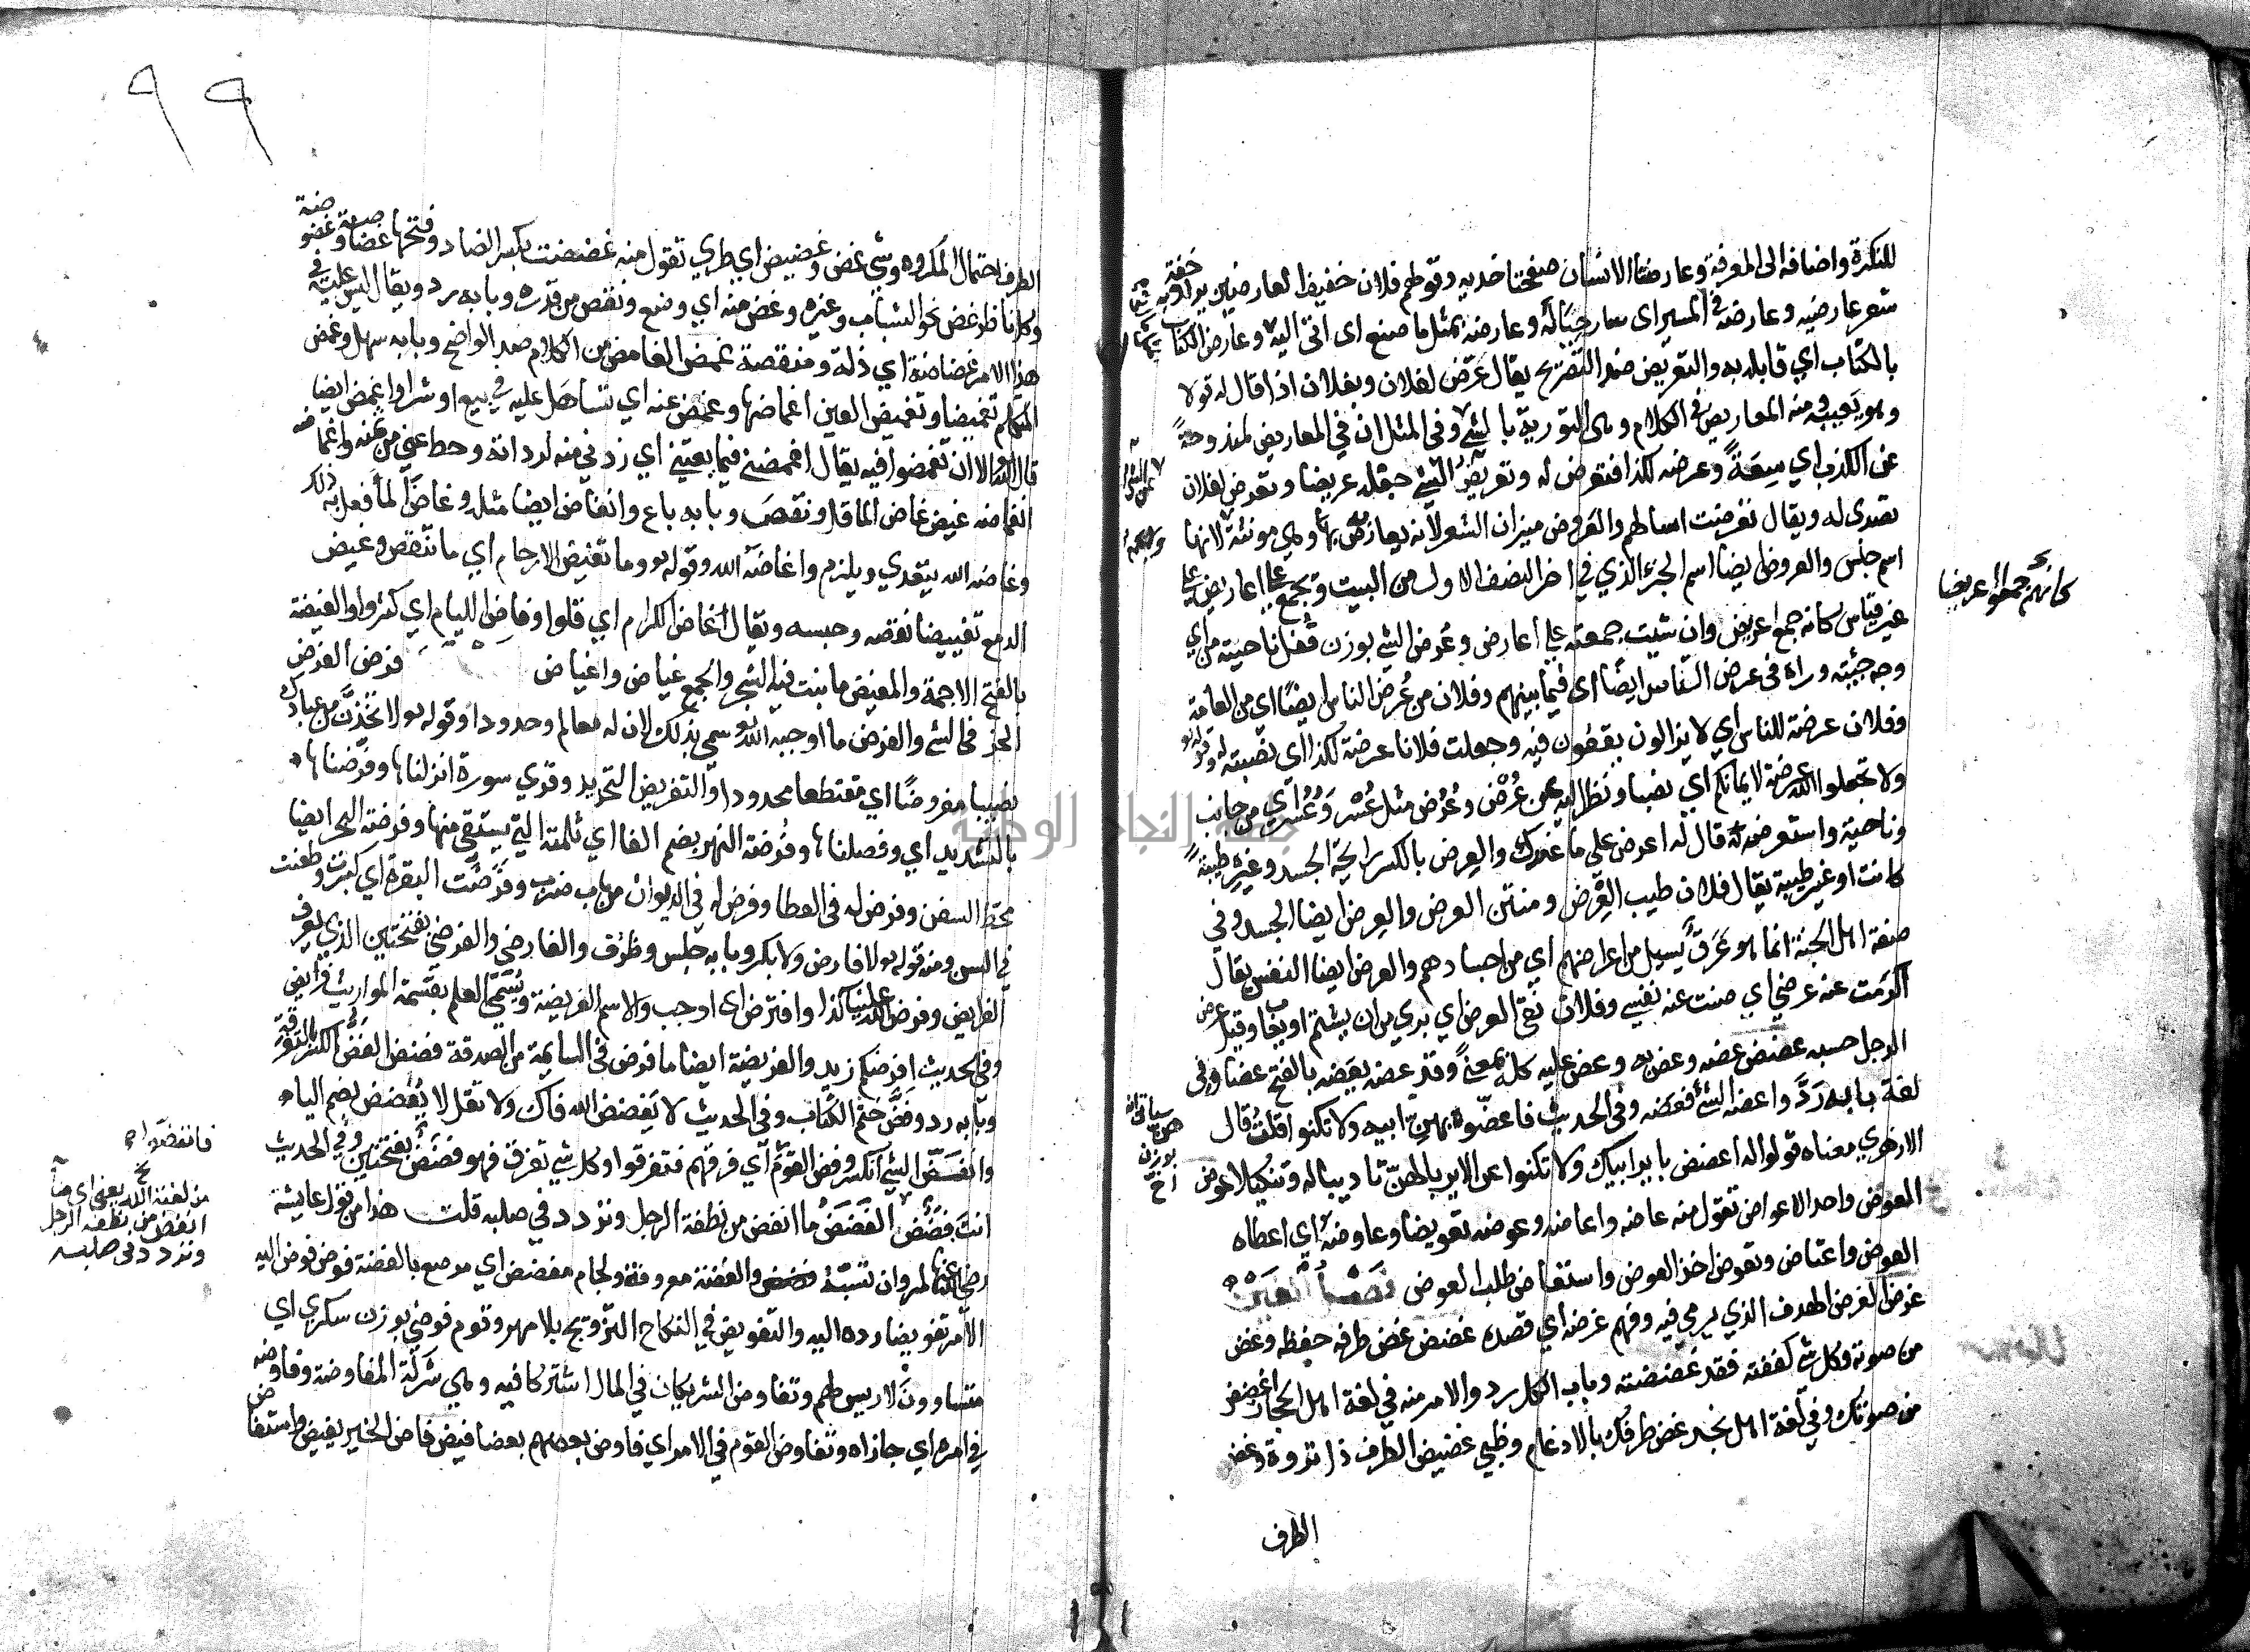 للنكرة واضافة الى المعرفة وعارضتا الانسان صفحتا خديه وقولهم فلان خفيف العارضين يراد به خفة
شعر عارضيه وعارضه في المسير اي سار حياله وعارضه بمثل ما صنع اي اتى اليه وعارض الكتاب
بالكتاب اي قابله به والتعريض ضد التصريح يقال عرّض لفلان وبفلان اذا قال قولا
وهو يعيبه ومنه المعاريض في الكلام وهي التورية بالشي وفي المثل ان في المعاريض لمندوحة
عن الكذب اي سعة وعرضه لكذا فتعرض له وتعريض الشي جعله عريضا وتعرض لفلان
تصدى له ويقال تعرضت اسالهم والعروض ميزان الشعر لانه يعارض بها وهي مونثة لانها
اسم جنس والعروض ايضا اسم الجزء الذي في اخر النصف الاول من البيت وتجمع على اعاريض على
غير قياس كانه جمع اعريض وان شيت جمعته على اعارض وعُرض الشي بوزن قفل ناحيته من اي
وجه جئته وراه في عرض الناس ايضا اي فيما بينهم وفلان من عُرض الناس ايضا اي من العامة
وفلان عرضة للناس اي لا يزالون يقعون فيه وجعلت فلانا عرضة لكذا اي نصبته له وقوله
ولا تجعلوا الله عرضة لايمانكم اي نصبا ونظر اليه عن عُرْض وعُرُض مثل عُسْر وعُسُر اي من جانب
وناحية واستعرضه قال له اعرض علي ما عندك والعِرض بالكسر رايحة الجسد وغيره طيبة
كانت او غير طيبة يقال فلان طيب العِرض ومنتن العرض والعِرض ايضا الجسد وفي
صفة اهل الجنة انما هو عَرَق يسيل من اعراضهم اي من اجسادهم والعرض ايضا النفس يقال
اكرمت عنه عرضي اي صنت عنه نفسي وفلان نقي العرض اي بري من ان يشتم او يعاب وقيل عرض
الرجل حسبه عضض عضه وعض به وعض عليه كله بمعنى وقد عضه يعضه بالفتح عضا وفي
لغة بابه رَدَّ واعضه الشي فعضه وفي الحديث فاعضّوه بهن ابيه ولا تكنوا قلت قال
الازهري معناه قولوا له اعضض باير ابيك ولا تكنوا عن الاير بالهن تاديبا له وتنكيلا عوض
العوض واحد الاعواض تقول منه عاضه واعاضه وعوضه تعويضا وعاوضه اي اعطاه
العوض واعتاض وتعوض اخذ العوض واستعاض طلب العوض فصل الغين
غرض الغرض الهدف الذي يرمى فيه وفهم غرضه اي قصده غضض غض طرفه خفظه وغض
من صوته وكل شي كففته فقد غضضته وباب الكل رد والامر منه في لغة اهل الحجاز اغضض
من صوتك وفي لغة اهل نجد غض طرفك بالادغام وظبي غضيض الطرف
الطرف
كانهم جمعوا اعريضا
٩٩
الطرف احتمال المكروه وشي غض وغضيض اي طري تقول منه غضضت بكسر الضاد وفتحها غضاضة وغضوضة
وكل ناظر غض نحو الشباب وغيره وغض منه اي وضع ونقص من قدره وبابه رد ويقال ليس عليك في
هذا الامر غضاضة اي ذلة ومنقصة غمض الغامض من الكلام ضد الواضح وبابه سهل وغمض
المتكلم تغميضا وتغميض العين اغماضها وغمض عنه اي تساهل عليه في بيع او شرا واغمض ايضا
قال الله الا ان تغمضوا فيه يقال اغمض لي فيما بعتني اي زدني منه لرداته وحط عني من ثمنه وانغماض
انغماضه غيض غاض الما قل ونقص وبابه باع وانغاض ايضا مثله وغاض الما فعل به ذلك
وغاضه الله يتعدي ويلزم واغاضه الله وقوله وما تغيض الارحام اي ما تنقص وغيض
الدمع تغييضا نقصه وحبسه ويقال غاض الكرام اي قلوا وفاض الليام اي كثروا والغيضة
بالفتح الاجمة والمغيض ما ينبت فيه الشجر والجمع غياض واغياض فرض الفرض
الحز في الشي والفرض ما اوجبه الله سمي بذلك لان له معالم وحدودا وقوله لاتخذنّ من عبادك
نصيبا مفروضا اي مقتطعا محدودا والتفريض التحزيز وقري سورة انزلناها وفرّضناها
بالتشديد اي وفصلناها وفُرضة النهر بضم الفا اي ثلمته التي يستقي منها وفرضة البحر ايضا
محط السفن وفرض له في العطا وفرض له في الديوان من باب ضرب وفرضت البقرة اي كبرت وطعنت
في السن ومنه قوله لا فارض ولا بكر وبابه جلس وظرف والفارض والفرضي بفتحتين الذي يعرف
الفرايض وفرض الله علينا كذا وافترض اي اوجب والاسم الفريضة ويُسمّى العلم بقسمة المواريث فرايض
وفي الحديث افرضكم زيد والفريضة ايضا ما فرض في السايمة من الصدقة فضض الفضّ الكسر بالتفرقة
وبابه رد وفضّ ختم الكتاب وفي الحديث لا يَفضض الله فاك ولا تقل لا يُفضض بضم الياء
وانفضّ الشي انكسر وفض القوم اي فرقهم فتفرقوا وكل شي تفرق فهو فضض بفتحتين وفي الحديث
انت فضض الفضض ما انفض من نطفة الرجل وتردد في صلبه قلت هذا من قول عايشة
رضي الله عنها لمروان والفضة معروفة ولجام مفضض اي مرصع بالفضة فوض فوض اليه
الامر تفويضا رده اليه والتفويض في النكاح التزويج بلا مهر وقوم فوضى بوزن سكرى اي
متساوون لا ريس لهم وتفاوض الشريكان في المال اشتركا فيه وهي شركة المفاوضة وفاوضه
في امره اي جازاه وتفاوض القوم في الامر اي فاوض بعضهم بعضا فيض فاض الخير يفيض واستفاض
من لعنة الله يعني اي ما
انفض من نطفة الرجل
وتردد في صلبه